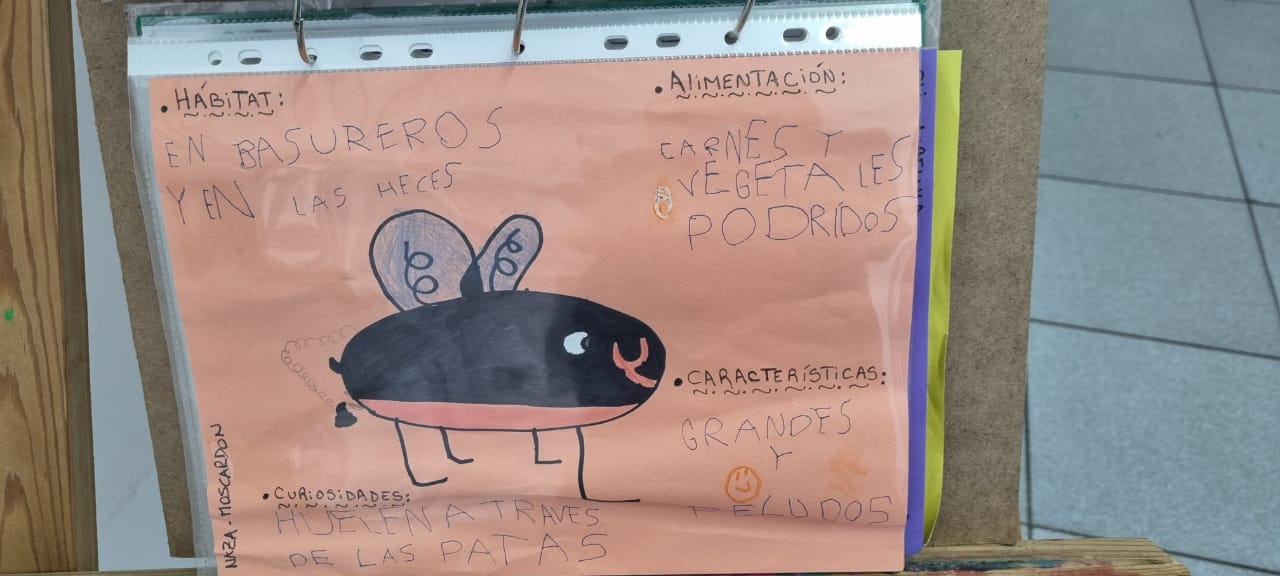 • HÁBITAT:
EN BASUREROS
Y EN LAS HECES
• ALIMENTACIÓN:
CARNES Y
VEGETALES
PODRIDOS
• CARACTERÍSTICAS:
GRANDES
Y
PELUDOS.
• CURIOSIDADES:
HUELEN A TRAVES
DE LAS PATAS
NAZA - MOSCARDON